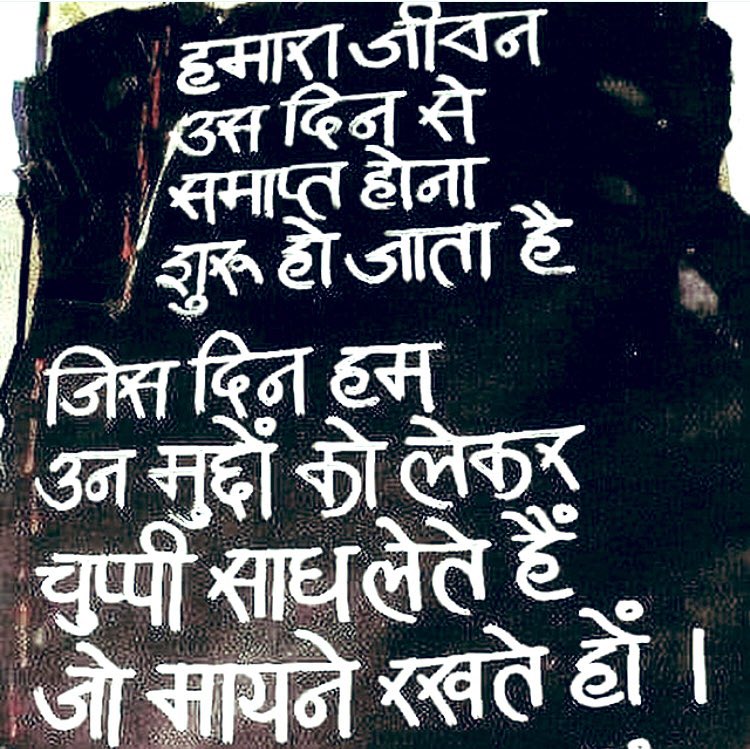 हमारा जीवन
उस दिन से
समाप्त होना
शुरू हो जाता है
जिस दिन हम
उन मुद्दों को लेकर
चुप्पी साध लेते हैं
जो मायने रखते हों ।